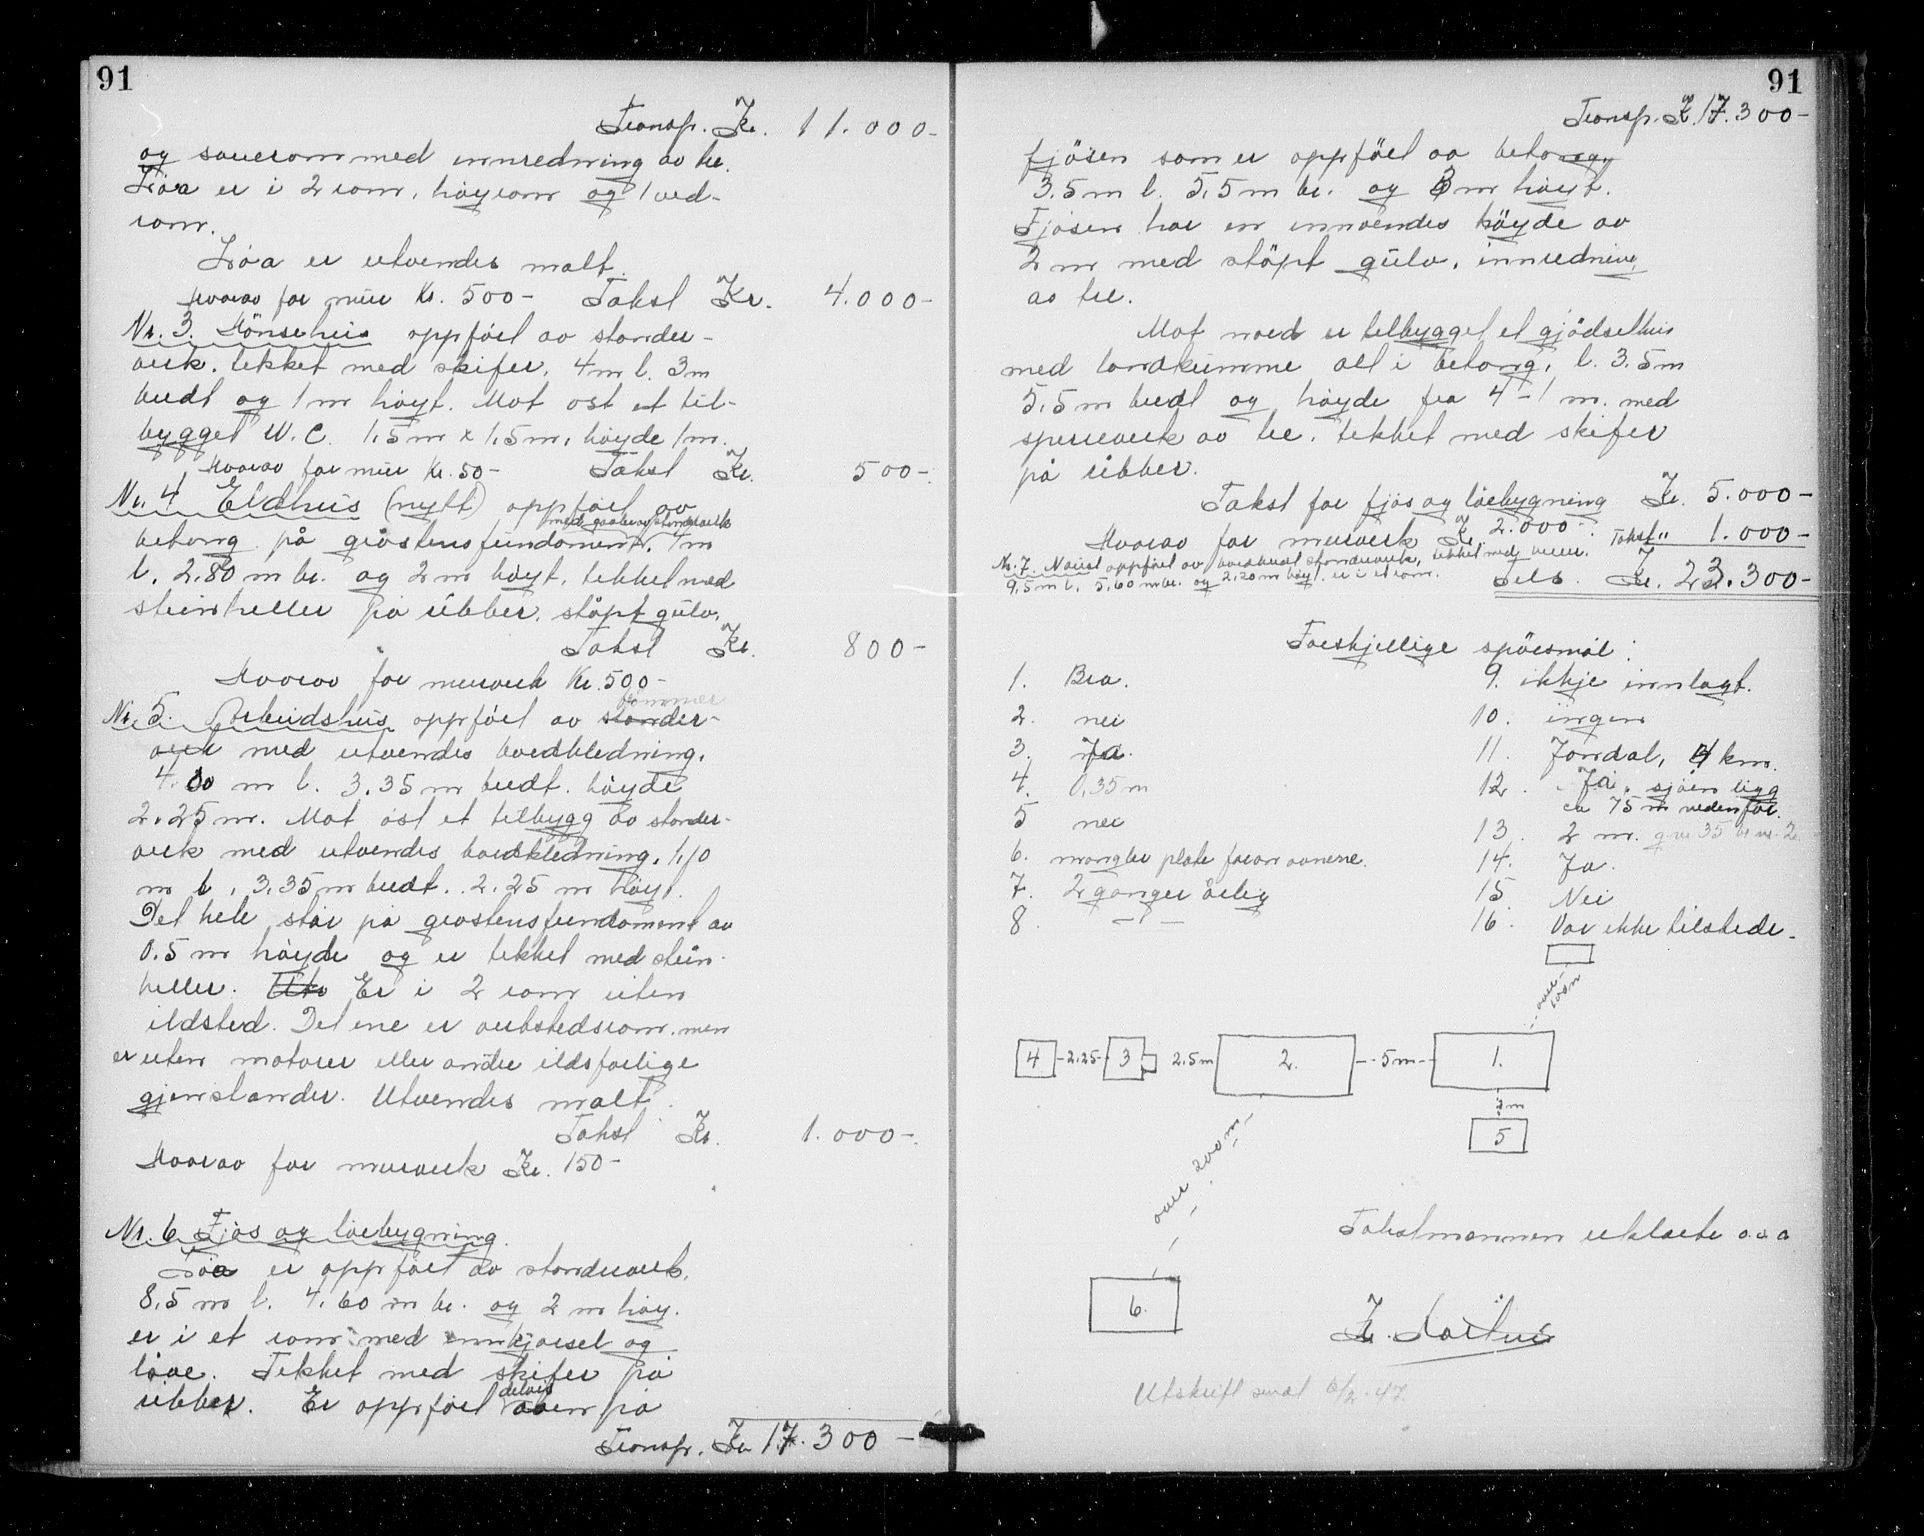 91
Transp. Kr. 11.000-
og sauerom med innredning av tre.
Löa er i 2 rom, höyrom og 1 ved-
rom.
Löa er utvendes malt.
Herav for mur Kr. 500- Takst Kr. 4.000-
Nr. 3. Hönsehus oppfört av stender-
verk. tekket med skifer, 4 m l. 3 m
bredt og 1 m höyt. Mot ost et til-
bygget W.C. 1,5 m x 1,5 m, höyde 1 m.
Herav for mur Kr. 50- Takst Kr. 500-
Nr. 4 Eldhus (nytt) oppfört av
med gavler av stenderverk
betong på gråstensfundament,
l. 2.80 m br. og 2 m höyt. tekket med
steinheller på übber. stöpt gulv.
Takst Kr. 800-
Herav for murverk Kr. 500-
tömmer
Nr. 5. Arbeidshus oppfört av stender-
verk med utvendes bordkledning.
4.00 m l. 3.35 m bredt. höyde
2.25 m. Mot ost et tilbygg av stender-
verk med utvendes bordkledning. 1,10
m l. 3,35 m bredt. 2.25 m höyt.
Det hele står på gråstensfundament av
0.5 m höyde og er tekket med stein-
heller. Er i 2 rom uten
ildsted. Det ene er verkstedsrom. men
er uten motorer eller andre ildsfarlige
gjenstander. Utvendes malt.
Takst Kr. 1.000-
Herav for murverk Kr. 150-
Nr. 6 Fjös og löebygning.
Löa er oppfört av stenderverk.
8,5 m l. 4.60 m br. og 2 m höy.
er i et rom med innkjörsel og
löve. Tekket med skifer på
delvis
übber. Er oppfört oven på
Transp. Kr 17.300-
91
Transp. Kr. 17.300-
fjösen som er oppfört av betong
3.5 m l. 5,5 m br. og 3 m höyt.
Fjösen har en innvendes höyde av
2 m med stöpt gulv. innredning
av tre.
Mot nord er tilbygget et gjödselhus
med landkumme alt i betong, l. 3.5 m
5,5 m bredt og höyde fra 4-1 m. med
sperreverk av tre. tekket med skifer
på übber.
Takst for fjös og löebygning Kr. 5.000-
Herav for murverk Kr. 2.000- Takst " 1.000-
Nr. 7. Naust oppfört av bordkledt stenderverk, tekket med heller.
9,5 m l. 5,60 m br. og 2,20 m höyt. er i et rom.
Tils. Kr. 23.300-
Forskjellige spörsmål:
1. Bra.
2. nei
3. Ja.
4. 0,35 m
5 nei
6. mangler plate foran ovnene.
7. 2 ganger årlig
8. - " -
9. ikkje innlagt.
10. ingen
11. Jondal, 4 km.
12. Ja, sjöen ligg
ca 75 m nedenfor.
13. 2 m. g.nr. 35 br. nr. 2.
14. Ja.
15 Nei
16. Var ikke tilstede.
over 100 m
4 -2,25- 3 2.5 m 2. -5 m- 1.
3 m
5
over 200 m
6.
Takstmennen erklærte o.s.a
Utskrift sendt 6/2-47